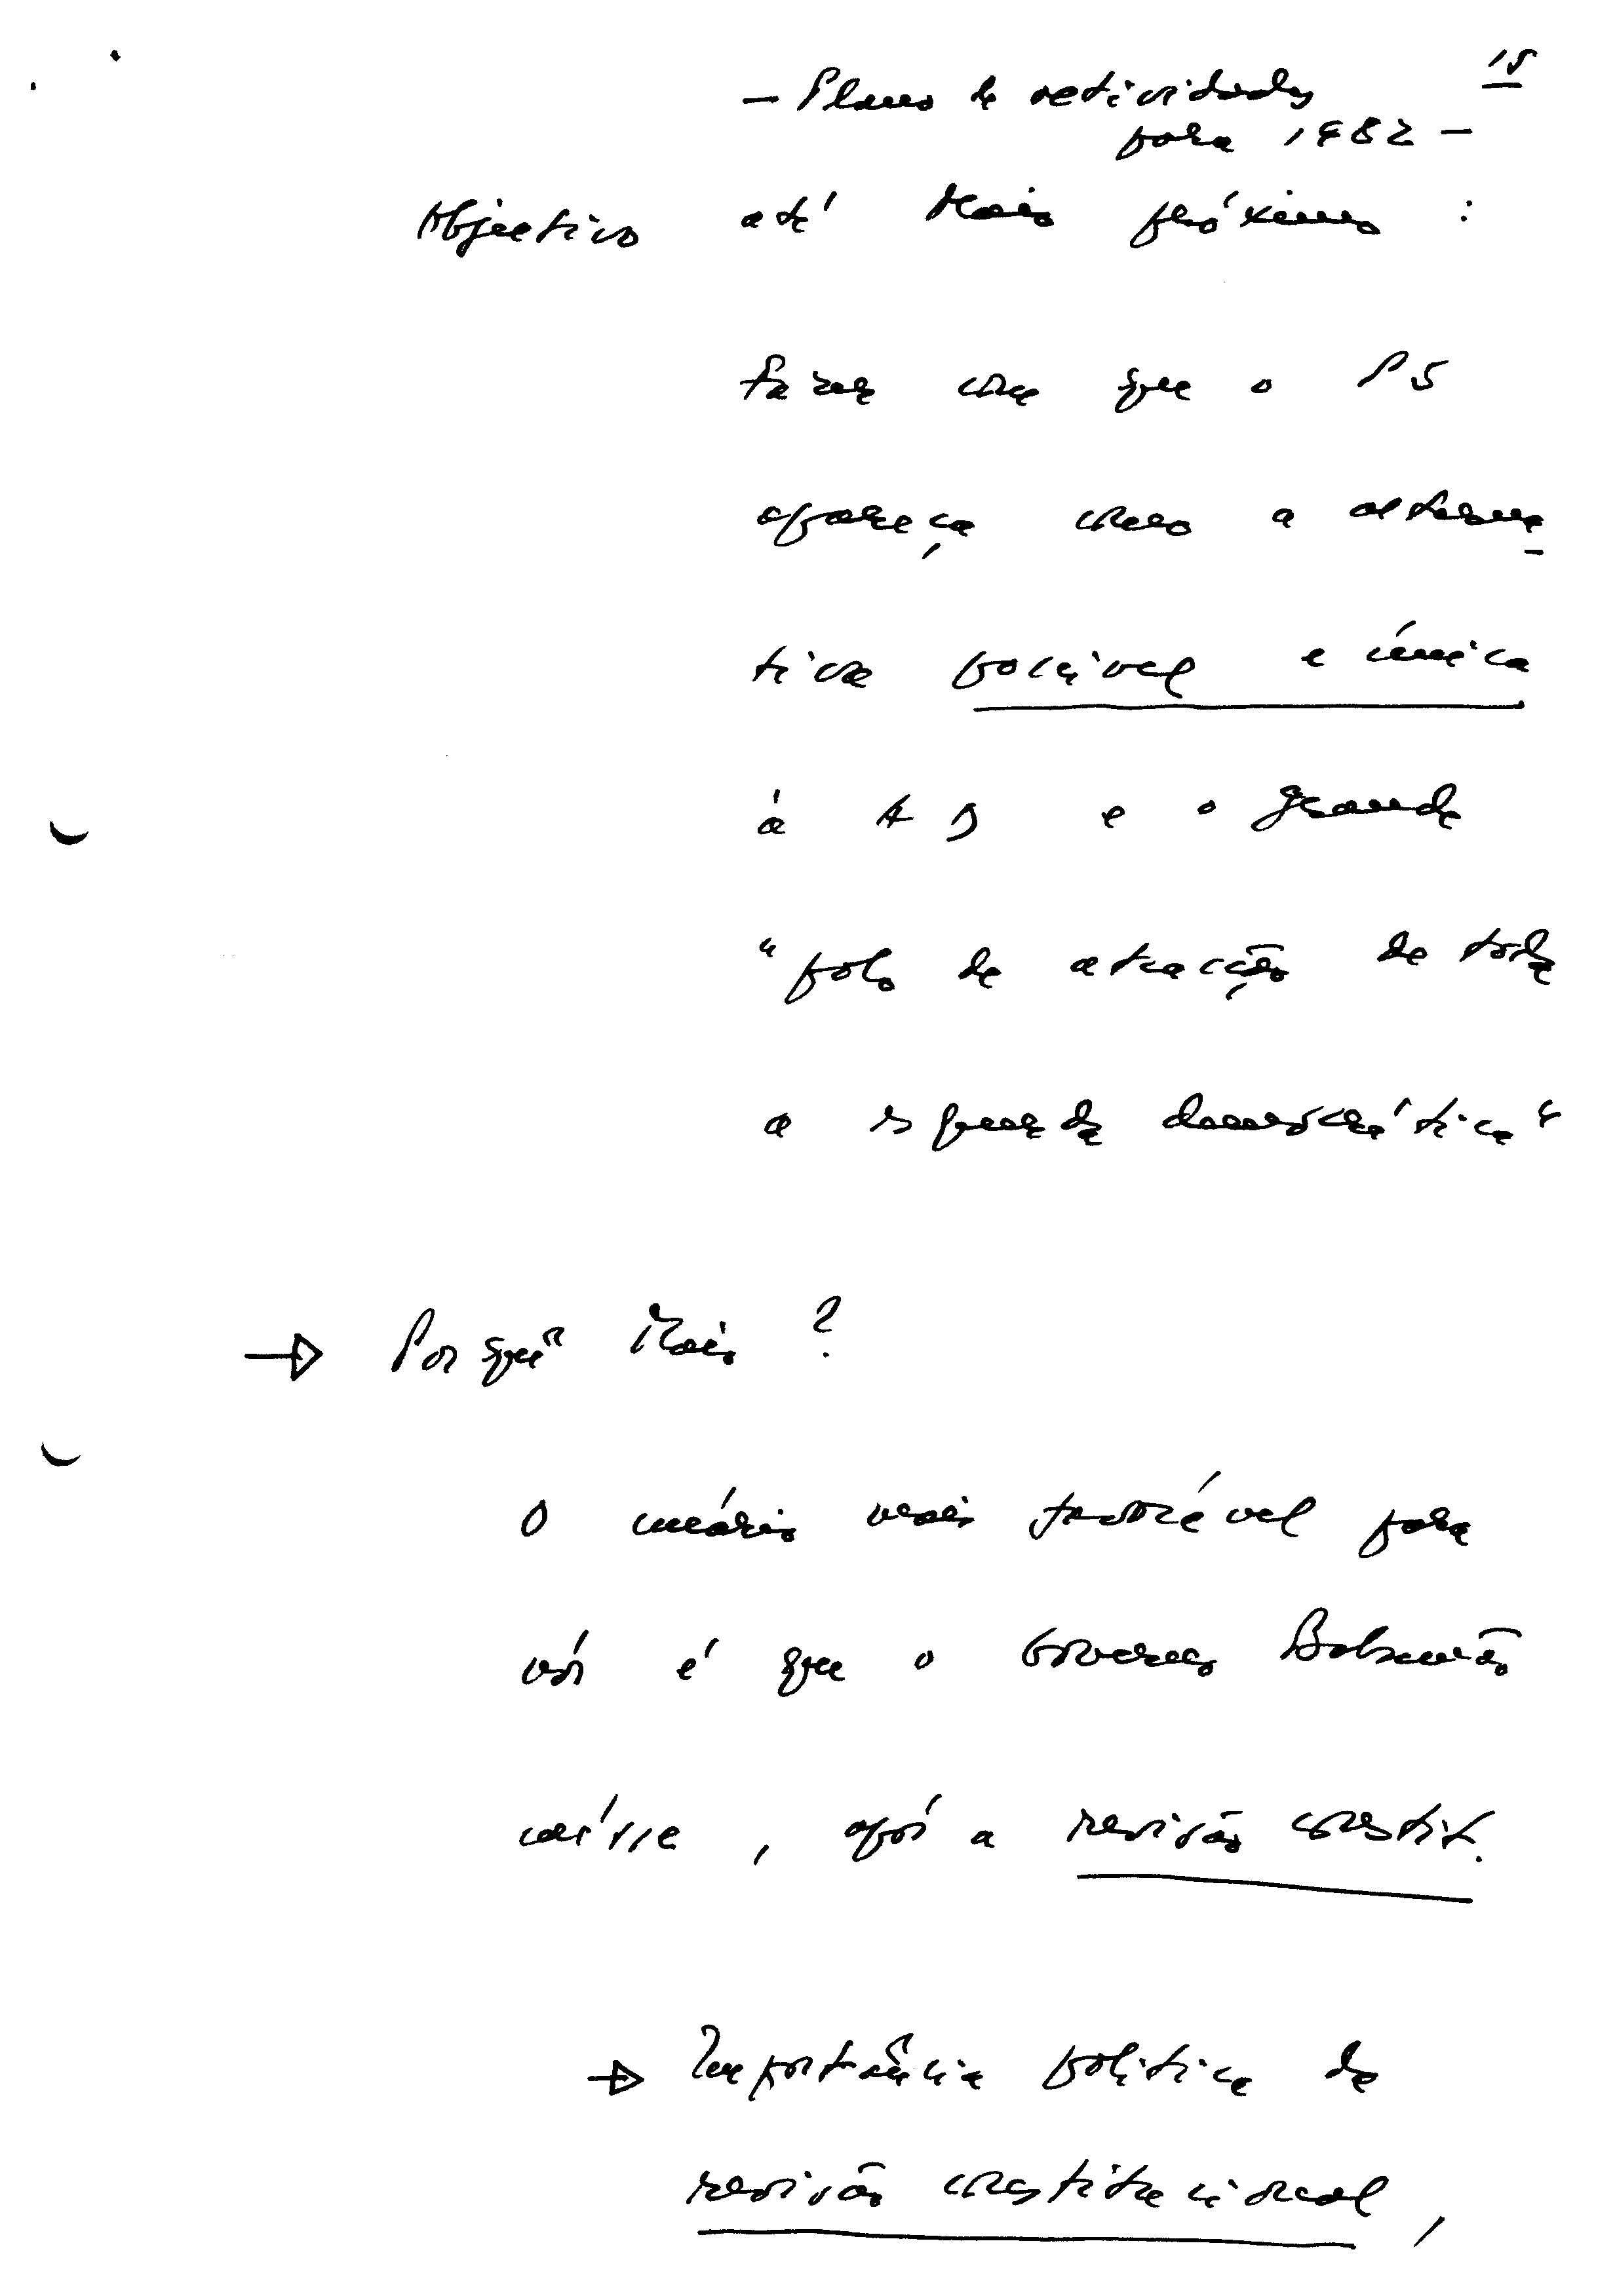 15
- Plano de actividades
para 1982 -
Objectivo até Maio próximo :
Fazer com que o PS
apareça como a alterna-
tiva possível e única
à AD e o grande
"polo de atracção de toda
a esquerda democrática"
→ Porquê Maio ?
O cenário mais favorável para
nós é que o Governo Balsemão
caísse, após a revisão constit.
→ Importância política da
revisão constitucional,